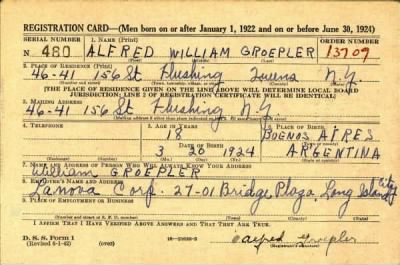 REGISTRATION CARD—(Men born on or after January 1, 1922 and on or before June 30, 1924)
SERIAL NUMBER 1. NAME (Print) ORDER NUMBER
N 480 ALFRED WILLIAM GROEPLER 13709
(First) (Middle) (Last)
2. PLACE OF RESIDENCE (Print)
46-41 156 St Flushing Queens N.Y.
(State)
[THE PLACE OF RESIDENCE GIVEN ON THE LINE ABOVE WILL DETERMINE LOCAL BOARD
JURISDICTION; LINE 2 OF REGISTRATION CERTIFICATE WILL BE IDENTICAL]
3. MAILING ADDRESS
46-41 156 St Flushing N.Y.
4. TELEPHONE 5. AGE IN YEARS 6. PLACE OF BIRTH
18 BUENOS AIRES
DATE OF BIRTH
3 20 1924 ARGENTINA
(Exchange) (Number) (Mo.) (Day) (Yr.) (State or country)
7. NAME AND ADDRESS OF PERSON WHO WILL ALWAYS KNOW YOUR ADDRESS
William GROEPLER
8. EMPLOYER'S NAME AND ADDRESS
Lanova Corp. 27-01 Bridge Plaza, Long Island City
9. PLACE OF EMPLOYMENT OR BUSINESS
(Number and street or R. F. D. number) (Town) (County) (State)
I AFFIRM THAT I HAVE VERIFIED ABOVE ANSWERS AND THAT THEY ARE TRUE.
D. S. S. Form 1
(Revised 6-1-42) (over) Alfred Groepler
(Registrant's signature)